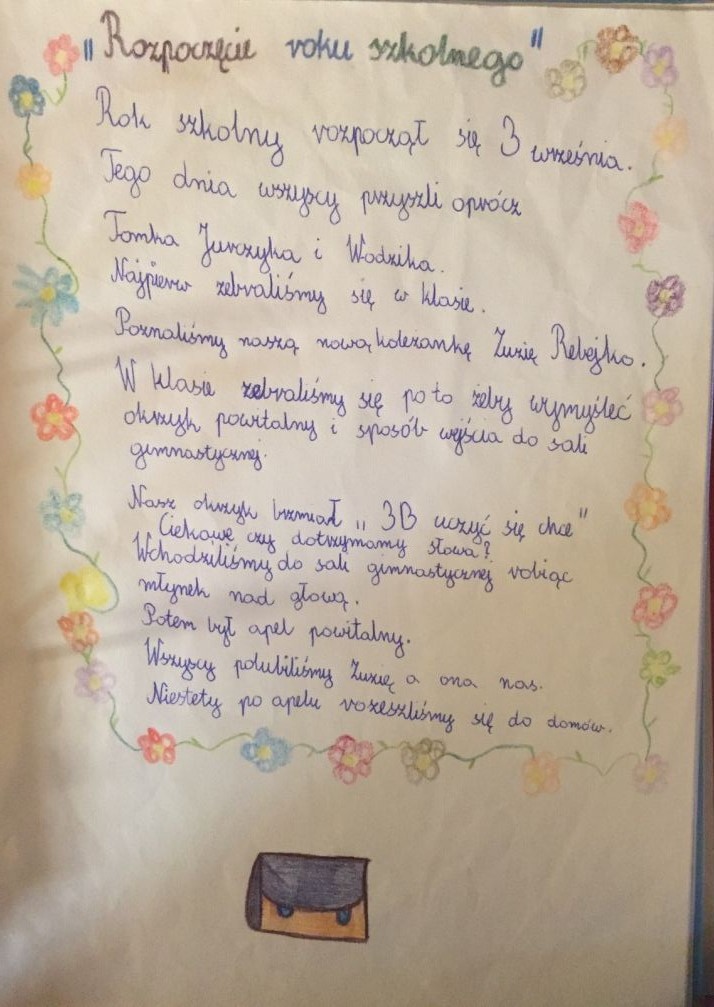 "Rozpoczęcie roku szkolnego"
Rok szkolny rozpoczął się 3 września.
Tego dnia wszyscy przyszli oprócz
Tomka Jurczyka i Wodzika.
Najpierw zebraliśmy się w klasie.
Poznaliśmy naszą nową koleżankę Zuzię Rebejko.
W klasie zebraliśmy się po to żeby wymyśleć
okrzyk powitalny i sposób wejścia do sali
gimnastycznej.
Nasz okrzyk brzmiał „ 3B uczyć się chce"
Ciekawe czy dotrzymamy słowa?
Wchodziliśmy do sali gimnastycznej robiąc
młynek nad głową.
Potem był apel powitalny.
Wszyscy polubiliśmy Zuzię a ona nas.
Niestety po apelu rozeszliśmy się do domów.